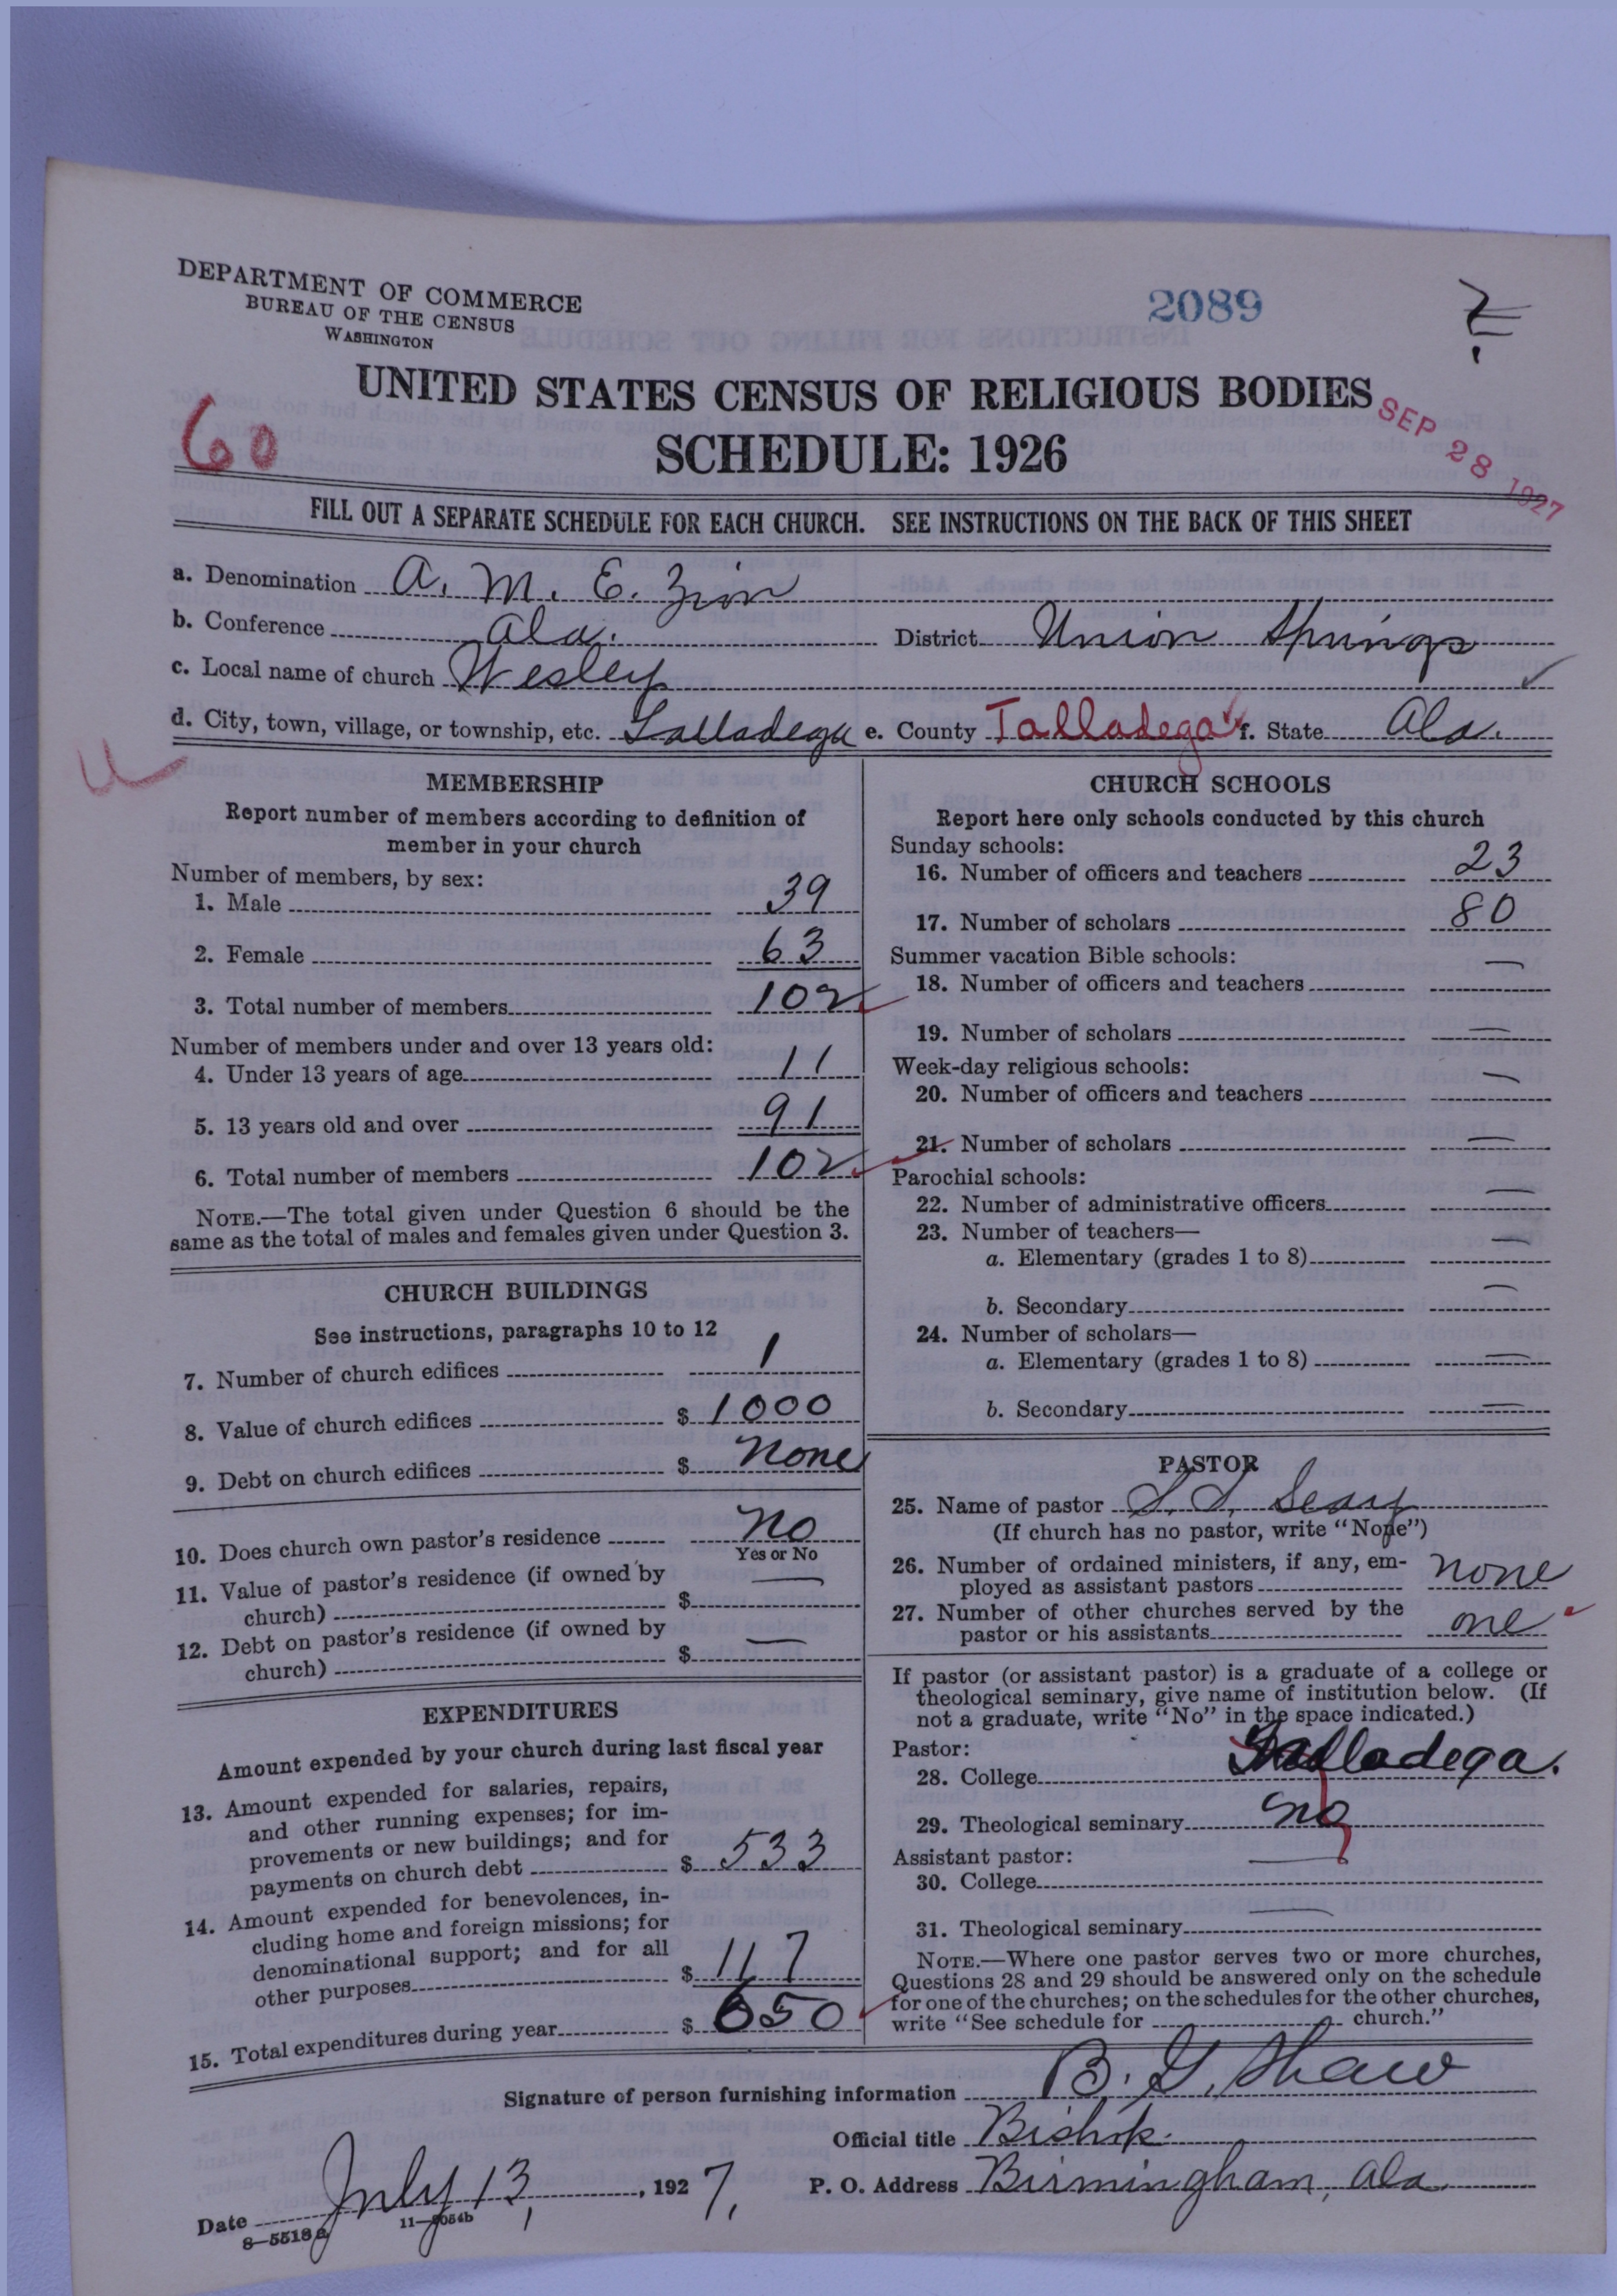 DEPARTMENT OF COMMERCE
BUREAU OF THE CENSUS
WASHINGTON
2089
UNITED STATES CENSUS OF RELIGIOUS BODIES
SCHEDULE: 1926
60
SEP 28 1927
FILL OUT A SEPARATE SCHEDULE FOR EACH CHURCH. SEE INSTRUCTIONS ON THE BACK OF THIS SHEET
a. Denomination A. M. E. Zion
b. Conference Ala. District Union Springs
c. Local name of church Wesley
d. City, town, village, or township, etc. Talladega e. County Talladega f. State Ala.
MEMBERSHIP
Report number of members according to definition of
member in your church
Number of members, by sex:
1. Male 39
2. Female 63
3. Total number of members 102
Number of members under and over 13 years old:
4. Under 13 years of age 11
5. 13 years old and over 91
6. Total number of members 102
NOTE.—The total given under Question 6 should be the
same as the total of males and females given under Question 3.
CHURCH BUILDINGS
See instructions, paragraphs 10 to 12
7. Number of church edifices 1
8. Value of church edifices $ 1000
9. Debt on church edifices $ None
10. Does church own pastor's residence No
Yes or No
11. Value of pastor's residence (if owned by
church) $ —
12. Debt on pastor's residence (if owned by
church) $ —
EXPENDITURES
Amount expended by your church during last fiscal year
13. Amount expended for salaries, repairs,
and other running expenses; for im-
provements or new buildings; and for
payments on church debt $ 533
14. Amount expended for benevolences, in-
cluding home and foreign missions; for
denominational support; and for all
other purposes $ 117
15. Total expenditures during year $ 650
CHURCH SCHOOLS
Report here only schools conducted by this church
Sunday schools:
16. Number of officers and teachers 23
17. Number of scholars 80
Summer vacation Bible schools:
18. Number of officers and teachers —
19. Number of scholars —
Week-day religious schools:
20. Number of officers and teachers —
21. Number of scholars —
Parochial schools:
22. Number of administrative officers —
23. Number of teachers—
a. Elementary (grades 1 to 8) —
b. Secondary —
24. Number of scholars—
a. Elementary (grades 1 to 8) —
b. Secondary —
PASTOR
25. Name of pastor S. S. Seay
(If church has no pastor, write "None")
26. Number of ordained ministers, if any, em-
ployed as assistant pastors None
27. Number of other churches served by the
pastor or his assistants one
If pastor (or assistant pastor) is a graduate of a college or
theological seminary, give name of institution below. (If
not a graduate, write "No" in the space indicated.)
Pastor:
28. College Talladega.
29. Theological seminary No
Assistant pastor:
30. College —
31. Theological seminary —
NOTE.—Where one pastor serves two or more churches,
Questions 28 and 29 should be answered only on the schedule
for one of the churches; on the schedules for the other churches,
write "See schedule for church."
Signature of person furnishing information B. G. Shaw
Official title Bishop.
Date July 13, 1927. P. O. Address Birmingham, Ala
8—5518a 11—9054b